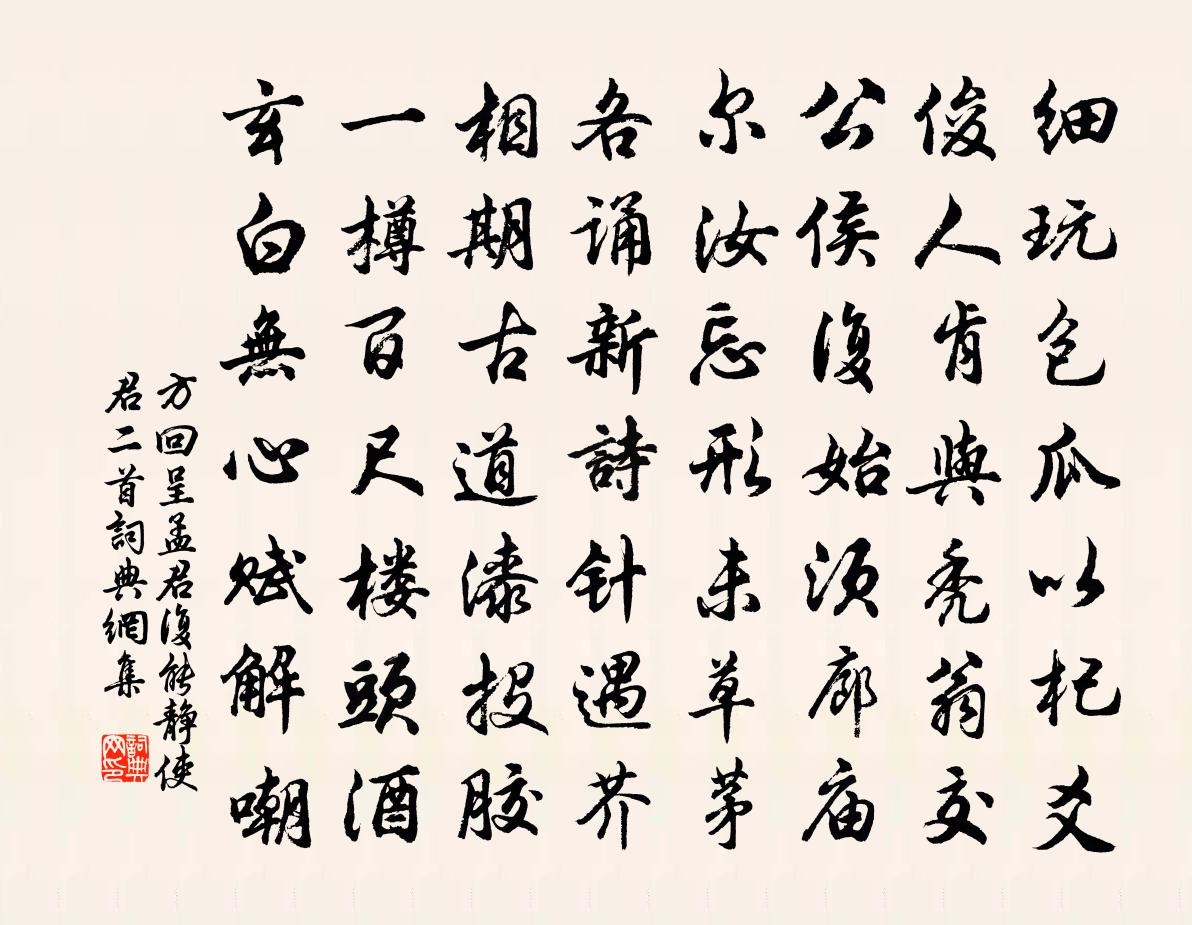 细玩包瓜以杞爻
俊人肯與秃翁交
公侯復始须廊庙
尔汝忘形未草茅
各诵新詩针遇芥
相期古道漆投胶
一樽百尺楼頭酒
玄白無心赋解嘲
方回呈孟君復能静使
君二首詞典網集
詞典
网印